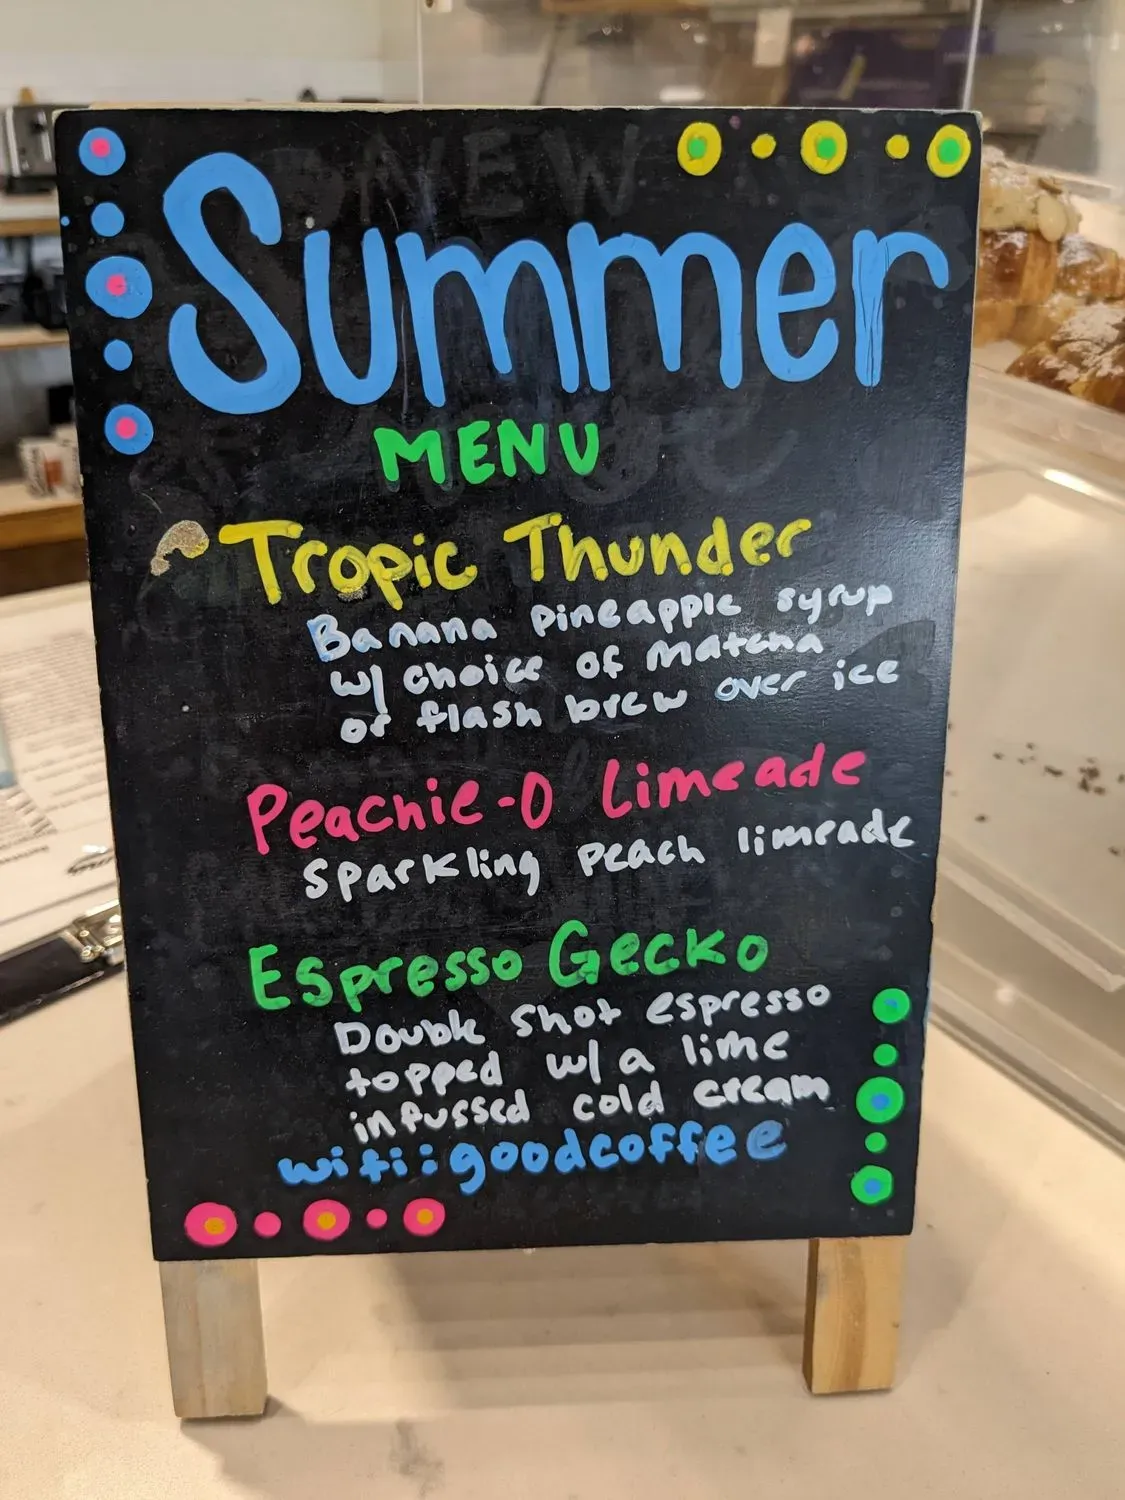 Summer
MENU
Tropic Thunder
Banana pineapple syrup
w/ choice of matcha
or flash brew over ice
Peachie-O Limeade
sparkling peach limeade
Espresso Gecko
Double shot espresso
topped w/ a lime
infussed cold cream
wifi: goodcoffee